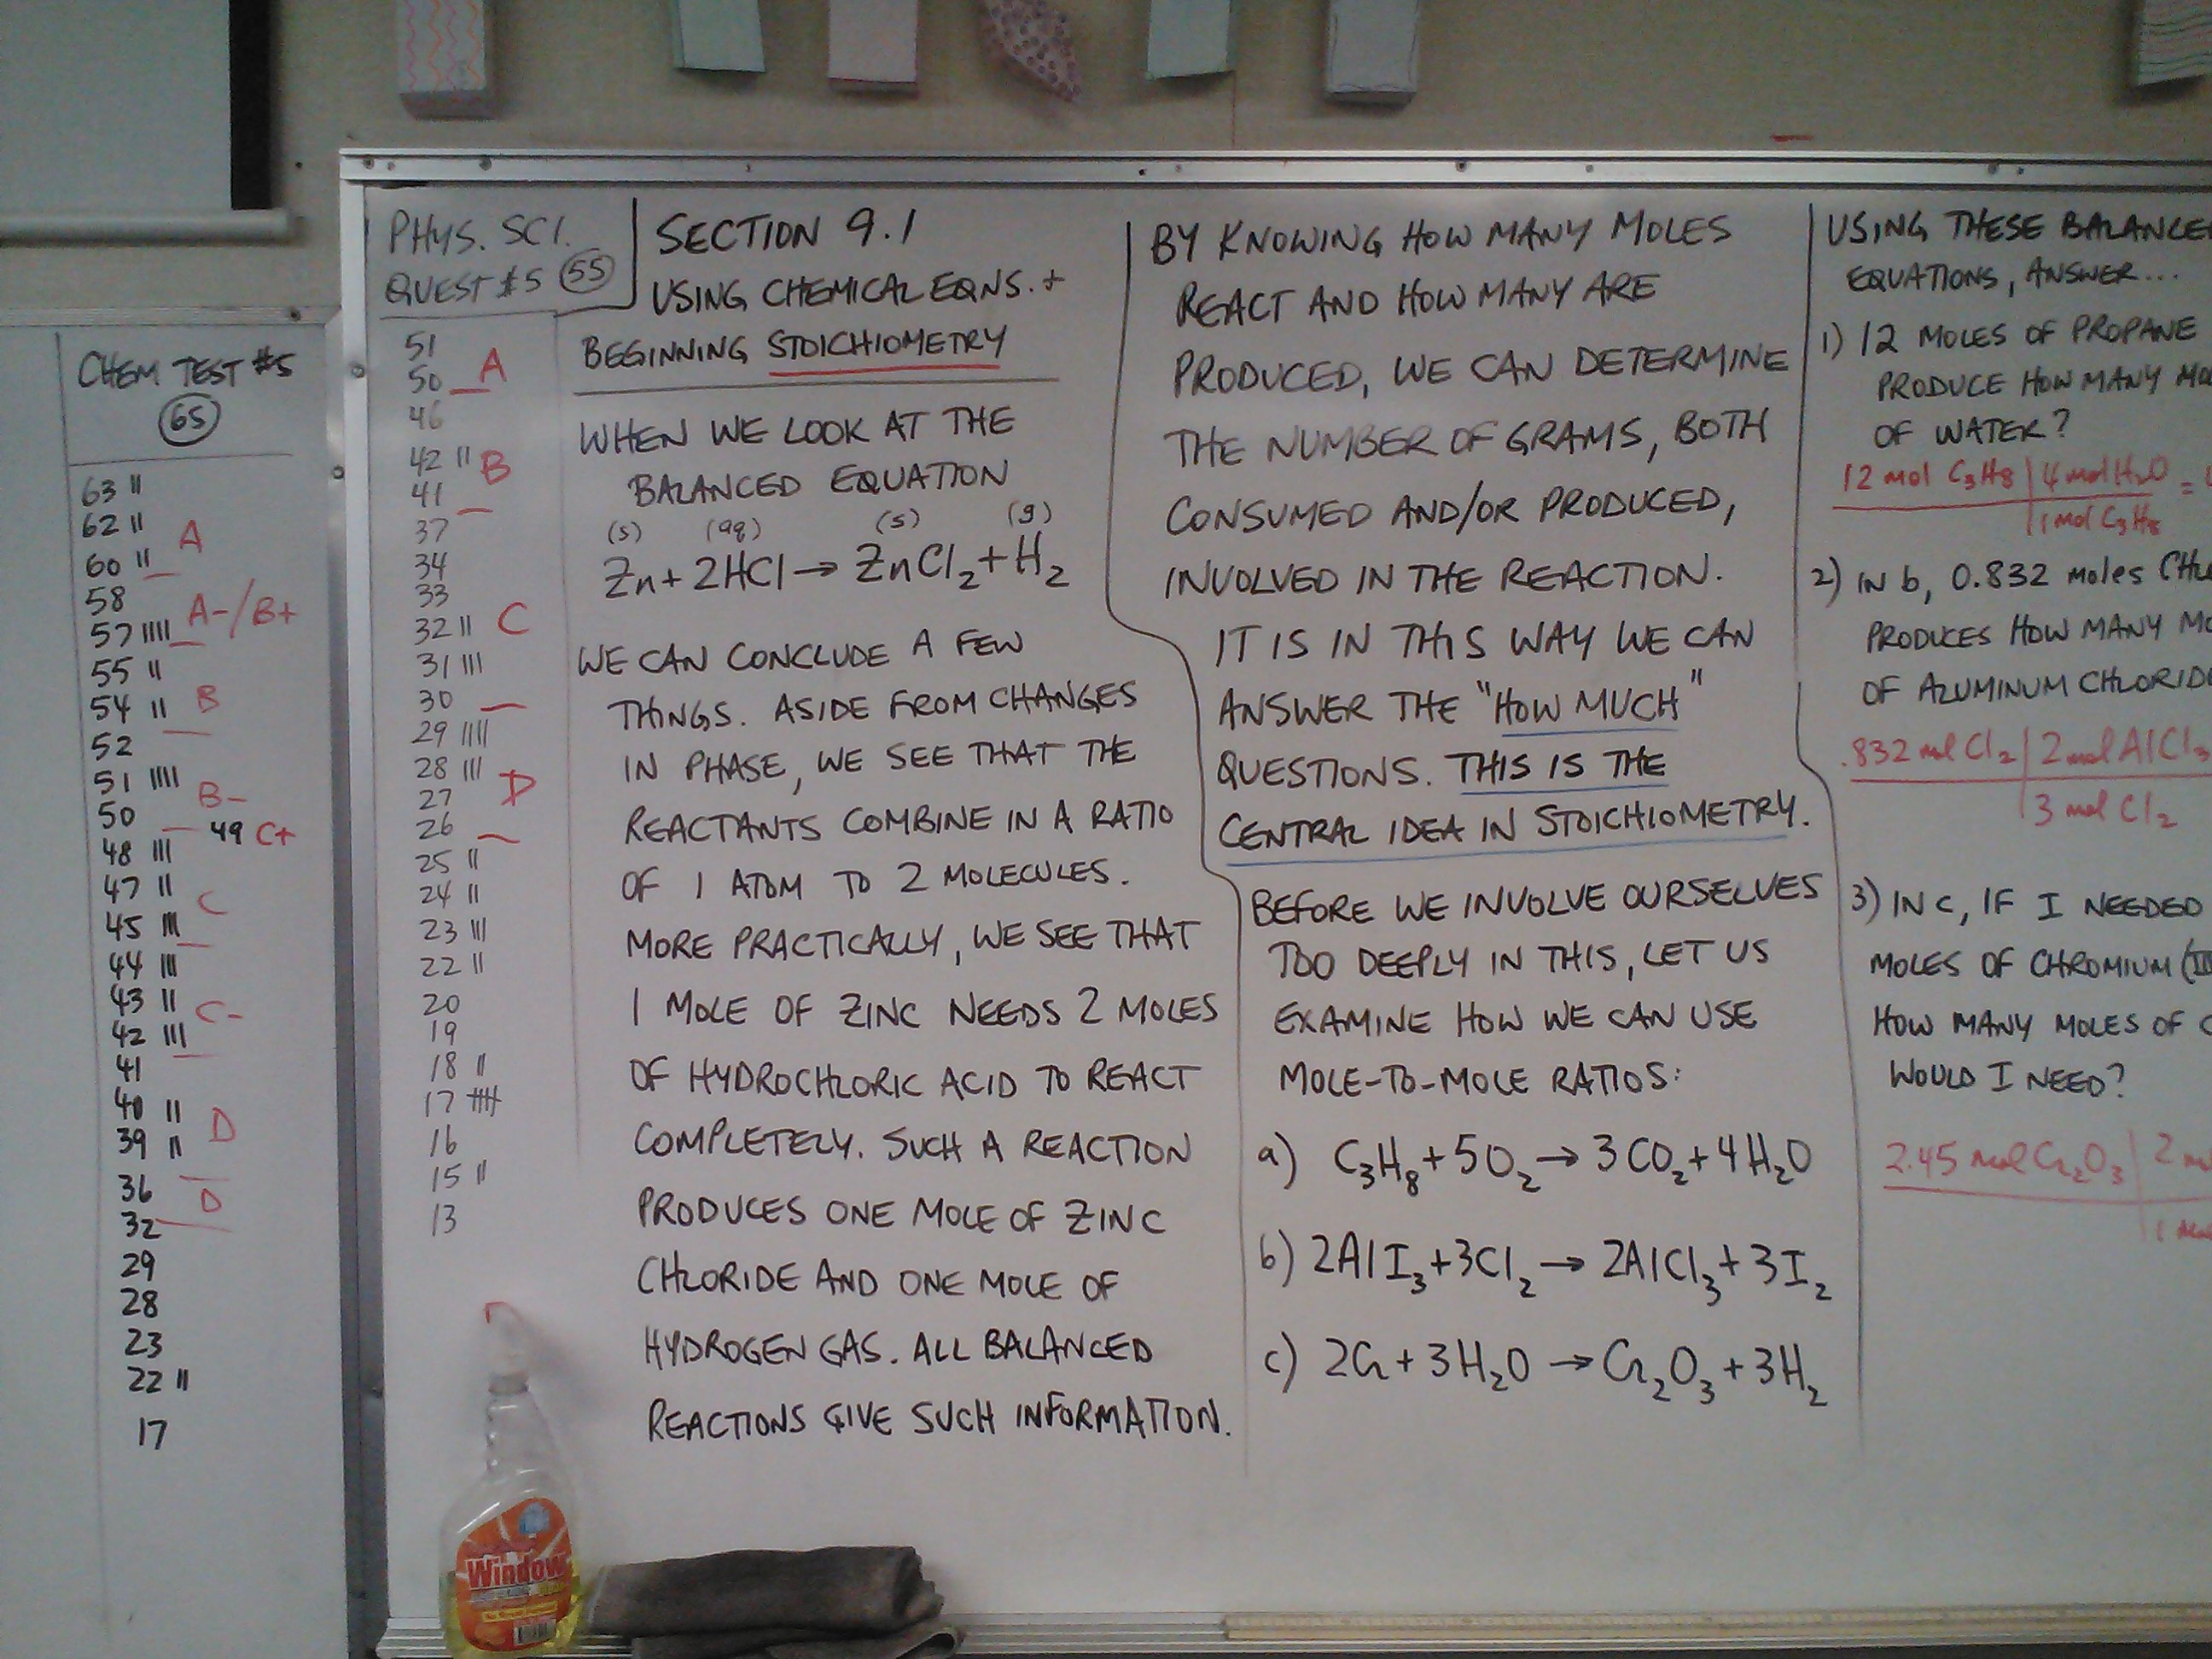 CHEM TEST #5
65
63 ||
62 || A
60 ||
58 A-/B+
57 ||||
55 ||
54 || B
52
51 ||||
50 B-
49 C+
48 |||
47 || C
45 |||
44 |||
43 || C-
42 |||
41
40 || D
39 ||
36 D
32
29
28
23
22 ||
17
PHYS. SCI.
QUEST #5 55
51
50 A
46
42 || B
41
37
34
33
32 || C
31 |||
30
29 ||||
28 |||
27 D
26
25 ||
24 ||
23 |||
22 ||
20
19
18 ||
17 ||||
16
15 ||
13
SECTION 9.1
USING CHEMICAL EQNS. +
BEGINNING STOICHIOMETRY
WHEN WE LOOK AT THE
BALANCED EQUATION
(s) (aq) (s) (g)
Zn + 2HCl → ZnCl₂ + H₂
WE CAN CONCLUDE A FEW
THINGS. ASIDE FROM CHANGES
IN PHASE, WE SEE THAT THE
REACTANTS COMBINE IN A RATIO
OF 1 ATOM TO 2 MOLECULES.
MORE PRACTICALLY, WE SEE THAT
1 MOLE OF ZINC NEEDS 2 MOLES
OF HYDROCHLORIC ACID TO REACT
COMPLETELY. SUCH A REACTION
PRODUCES ONE MOLE OF ZINC
CHLORIDE AND ONE MOLE OF
HYDROGEN GAS. ALL BALANCED
REACTIONS GIVE SUCH INFORMATION.
BY KNOWING HOW MANY MOLES
REACT AND HOW MANY ARE
PRODUCED, WE CAN DETERMINE
THE NUMBER OF GRAMS, BOTH
CONSUMED AND/OR PRODUCED,
INVOLVED IN THE REACTION.
IT IS IN THIS WAY WE CAN
ANSWER THE "HOW MUCH"
QUESTIONS. THIS IS THE
CENTRAL IDEA IN STOICHIOMETRY.
BEFORE WE INVOLVE OURSELVES
TOO DEEPLY IN THIS, LET US
EXAMINE HOW WE CAN USE
MOLE-TO-MOLE RATIOS:
a) C₃H₈ + 5O₂ → 3CO₂ + 4H₂O
b) 2AlI₃ + 3Cl₂ → 2AlCl₃ + 3I₂
c) 2Cr + 3H₂O → Cr₂O₃ + 3H₂
USING THESE BALANCE
EQUATIONS, ANSWER...
1) 12 MOLES OF PROPANE
PRODUCE HOW MANY
OF WATER?
12 mol C₃H₈ | 4 mol H₂O =
1 mol C₃H₈
2) IN b, 0.832 MOLES
PRODUCES HOW MANY
OF ALUMINUM CHLORIDE
.832 mol Cl₂ | 2 mol AlCl₃
3 mol Cl₂
3) IN C, IF I NEEDED
MOLES OF CHROMIUM
HOW MANY MOLES OF
WOULD I NEED?
2.45 mol Cr₂O₃ | 2
1
Window